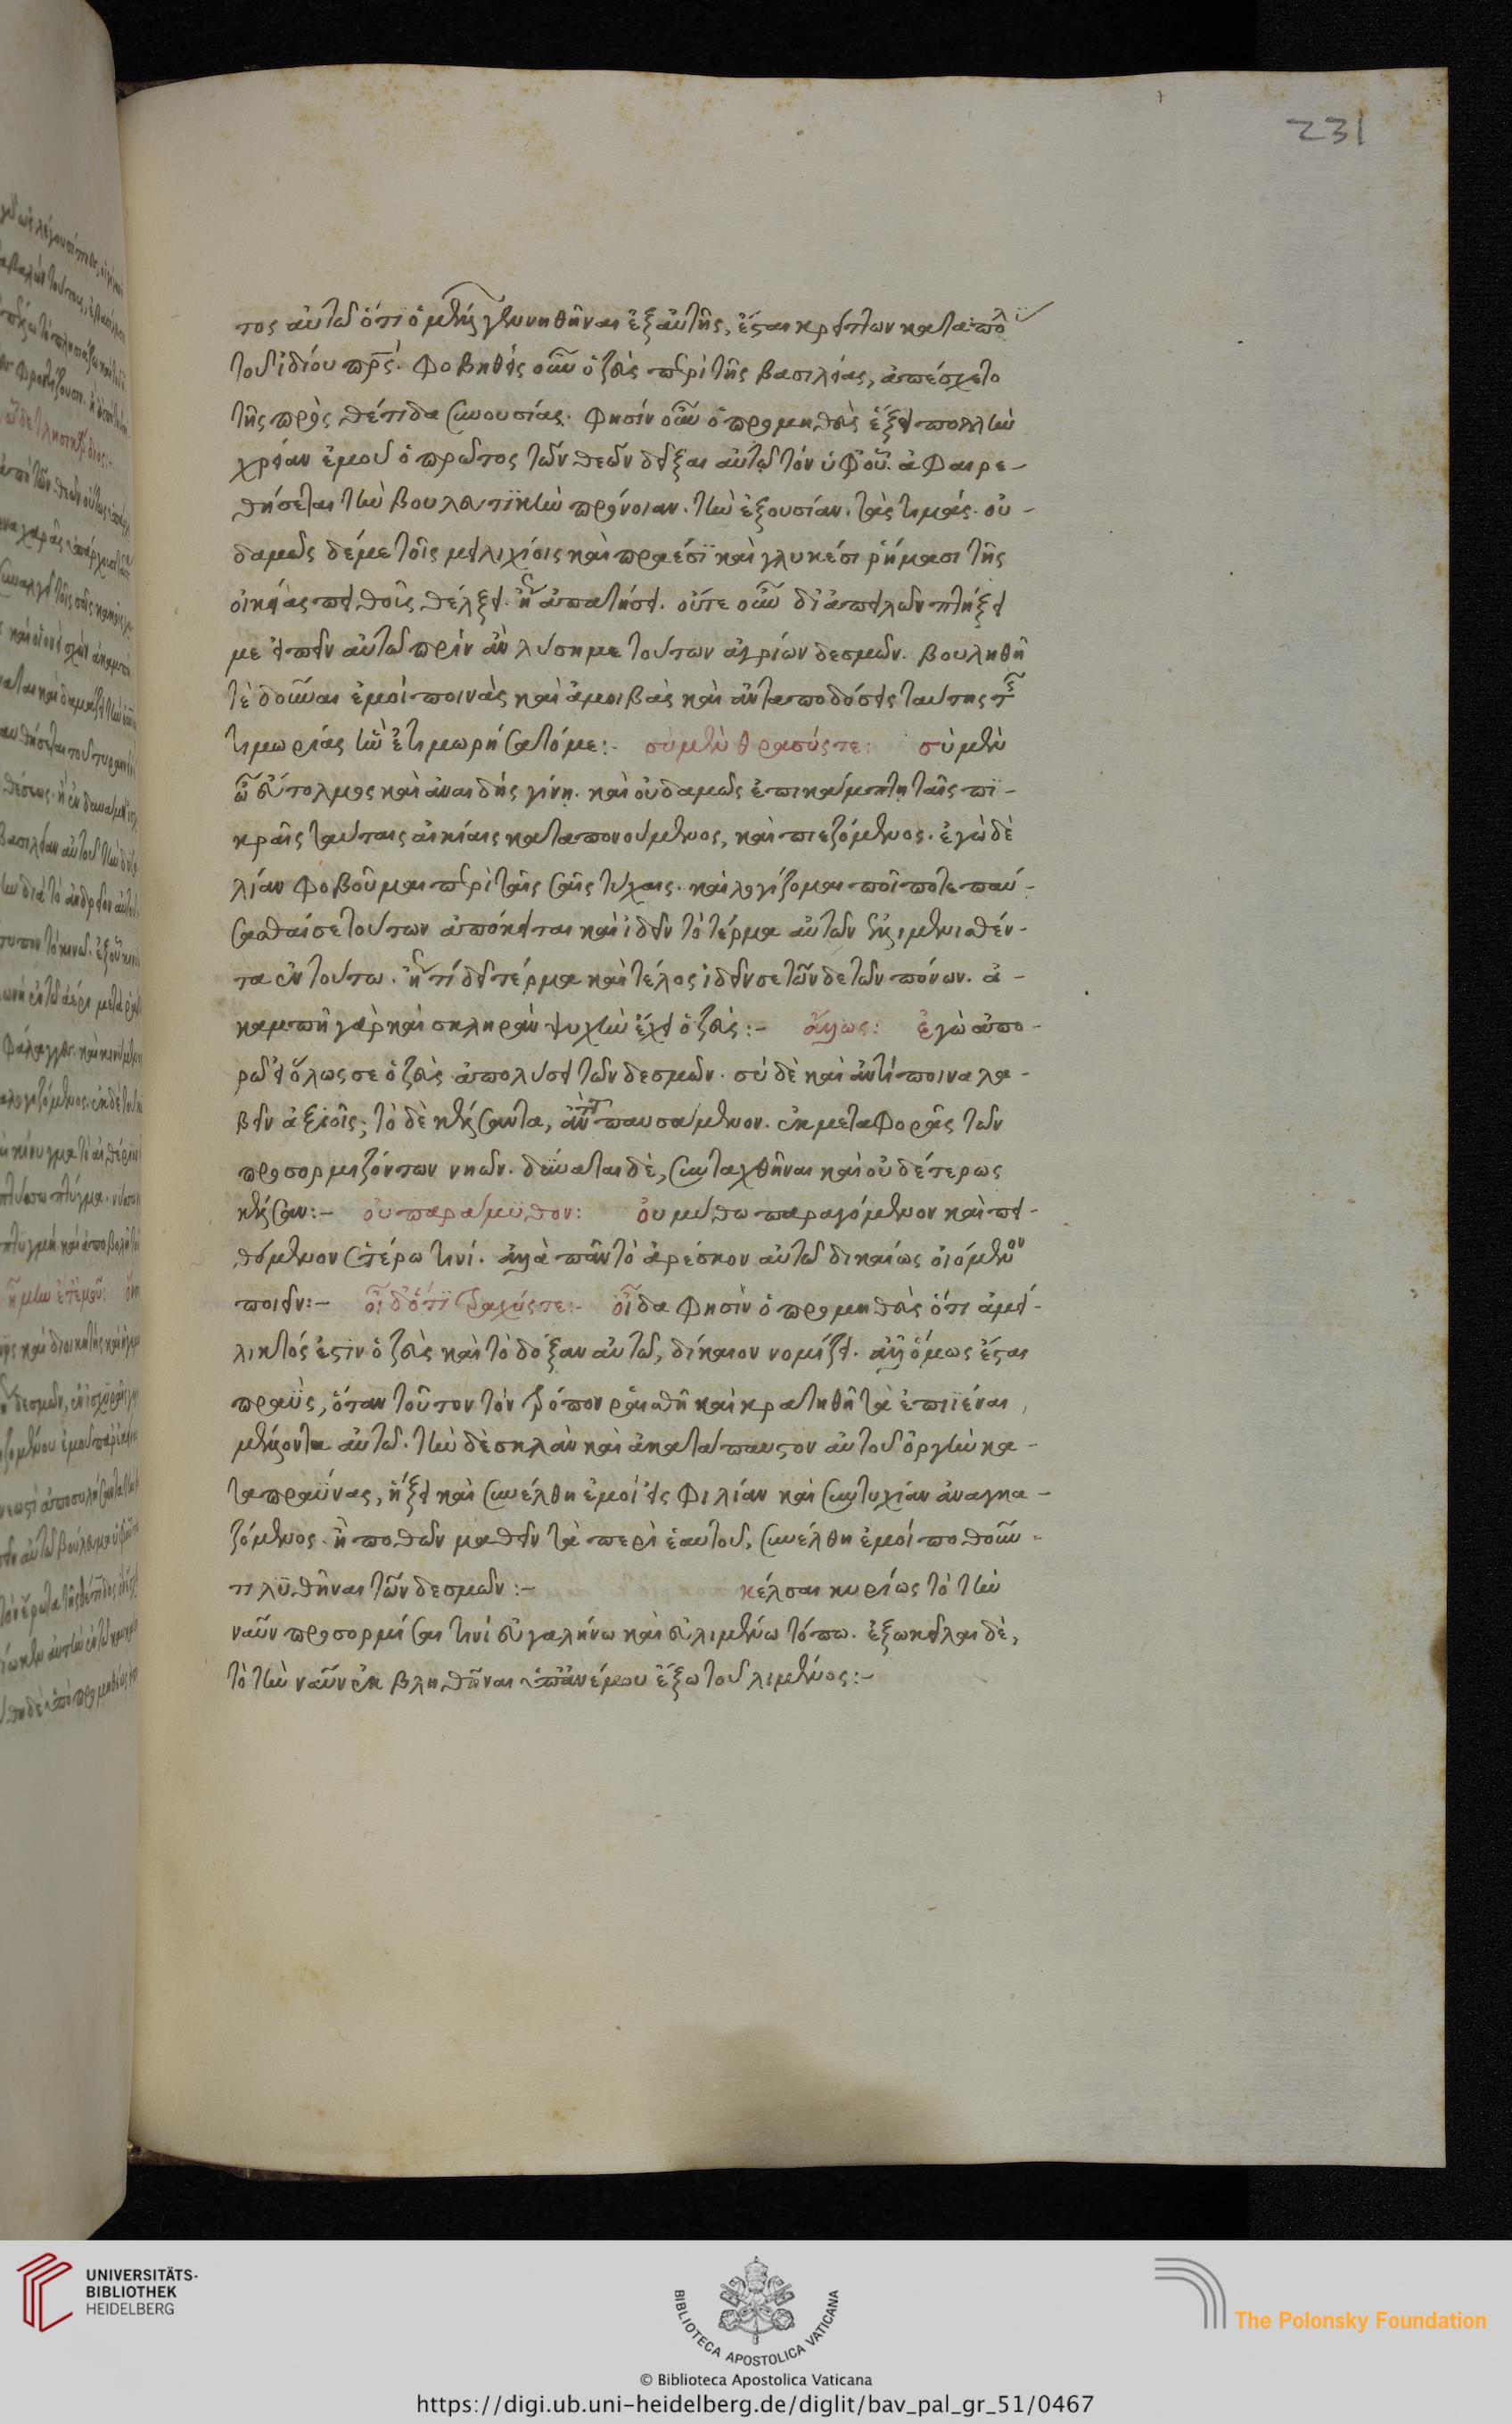 231
τος αὐτῶ ὅτι ὁ μέλλων γεννηθῆναι ἐξ αὐτῆς, ἔσται κρείττων κατα πολὺ
τοῦ ἰδίου πρς. φοβηθεὶς οὖν ὁ ζεὺς περὶ τῆς βασιλείας, ἀπέσχετο
τῆς πρὸς θέτιδα συνουσίας. φησὶν οὖν ὁ προμηθεὺς ἕξει πολλὴν
χρείαν ἐμοῦ ὁ πρῶτος τῶν θεῶν δεῖξαι αὐτῶ τὸν ὑφ' οὗ ἀφαιρε-
θήσεται τὴν βουλευτικὴν πρόνοιαν. τὴν ἐξουσίαν. τὰς τιμάς. οὐ-
δαμῶς δέ με τοῖς μειλιχίοις καὶ πραέσι καὶ γλυκέσι ῥήμασι τῆς
οἰκείας πειθοῦς θέλξει. ἢ ἀπατήσει. οὔτε οὖν δι ἀπειλῶν πλήξει
με εἰπεῖν αὐτῶ πρὶν ἂν λύσῃ με τούτων ἀγρίων δεσμῶν. βουληθῆ
τὲ δοῦναι ἐμοὶ ποινὰς καὶ ἀμοιβὰς καὶ ἀνταποδόσεις ταύτης τῆς
τιμωρίας ἣν ἐτιμωρήσατό με:- σὺ μὲν θρασύς τε: σὺ μὲν
ὦ εὔτολμος καὶ ἀναιδὴς γίνῃ. καὶ οὐδαμῶς ἐπικάμπτῃ ταῖς πι-
κραῖς ταύταις αἰκίαις καταπονούμενος, καὶ πιεζόμενος. ἐγὼ δὲ
λίαν φοβοῦμαι περὶ ταῖς σαῖς τύχαις. καὶ λογίζομαι ποῖ ποτε παύ-
σασθαί σε τούτων ἀπόκειται καὶ ἰδεῖν τὸ τέρμα αὐτῶν
τα ἐν τούτω. ἢ τί δεῖ τέρμα καὶ τέλος ἰδεῖν σε τῶν δε τῶν πόνων. ἀ-
καμπῆ γὰρ καὶ σκληρὰν ψυχὴν ἔχει ὁ ζεύς:- ἄλλως: ἐγὼ ἀπο-
ρῶ εἰ ὅλως σε ὁ ζεὺς ἀπολύσει τῶν δεσμῶν. σὺ δὲ καὶ ἀντίποινα λα-
βεῖν ἀξιοῖς; τὸ δὲ κέλσαντα, ἀντὶ τοῦ παυσάμενον. ἐκ μεταφορᾶς τῶν
προσορμιζόντων νηῶν. δύναται δὲ, συνταχθῆναι καὶ οὐδετέρως
κέλσαν:- οὐ παράμυθον: οὐ μύθω παραγόμενον καὶ πει-
θόμενον ἑτέρω τινί. ἀλλὰ πᾶν τὸ ἀρέσκον αὐτῶ δικαίως οἰόμενον
ποιεῖν:- οἶδ' ὅτι τραχύς τε:- οἶδα φησὶν ὁ προμηθεὺς ὅτι ἀμεί-
λικτός ἐστιν ὁ ζεὺς καὶ τὸ δόξαν αὐτῶ, δίκαιον νομίζει. ἀλλ' ὅμως ἔσται
πραῢς, ὅταν τοῦτον τὸν τρόπον ῥαισθῆ καὶ κρατηθῆ τὰ ἐπιϊέναι
μέλλοντα αὐτῶ. τὴν δὲ σκληρὰν καὶ ἀκατάπαυστον αὐτοῦ ὀργὴν κα-
ταπραΰνας, ἥξει καὶ συνέλθῃ ἐμοὶ εἰς φιλίαν καὶ συντυχίαν ἀναγκα-
ζόμενος. ἢ ποθῶν μαθεῖν τὰ περὶ ἑαυτοῦ, συνέλθῃ ἐμοὶ ποθοῦν-
τι λυθῆναι τῶν δεσμῶν:- κέλσαι κυρίως τὸ τὴν
ναῦν προσορμίσαι τινὶ εὐγαλήνω καὶ εὐλιμένω τόπω. ἐξωκεῖλαι δὲ,
τὸ τὴν ναῦν ἐκβληθῆναι ὑπ' ἀνέμου ἔξω τοῦ λιμένος:-
UNIVERSITÄTS-
BIBLIOTHEK
HEIDELBERG
BIBLIOTECA APOSTOLICA VATICANA
The Polonsky Foundation
© Biblioteca Apostolica Vaticana
https://digi.ub.uni-heidelberg.de/diglit/bav_pal_gr_51/0467